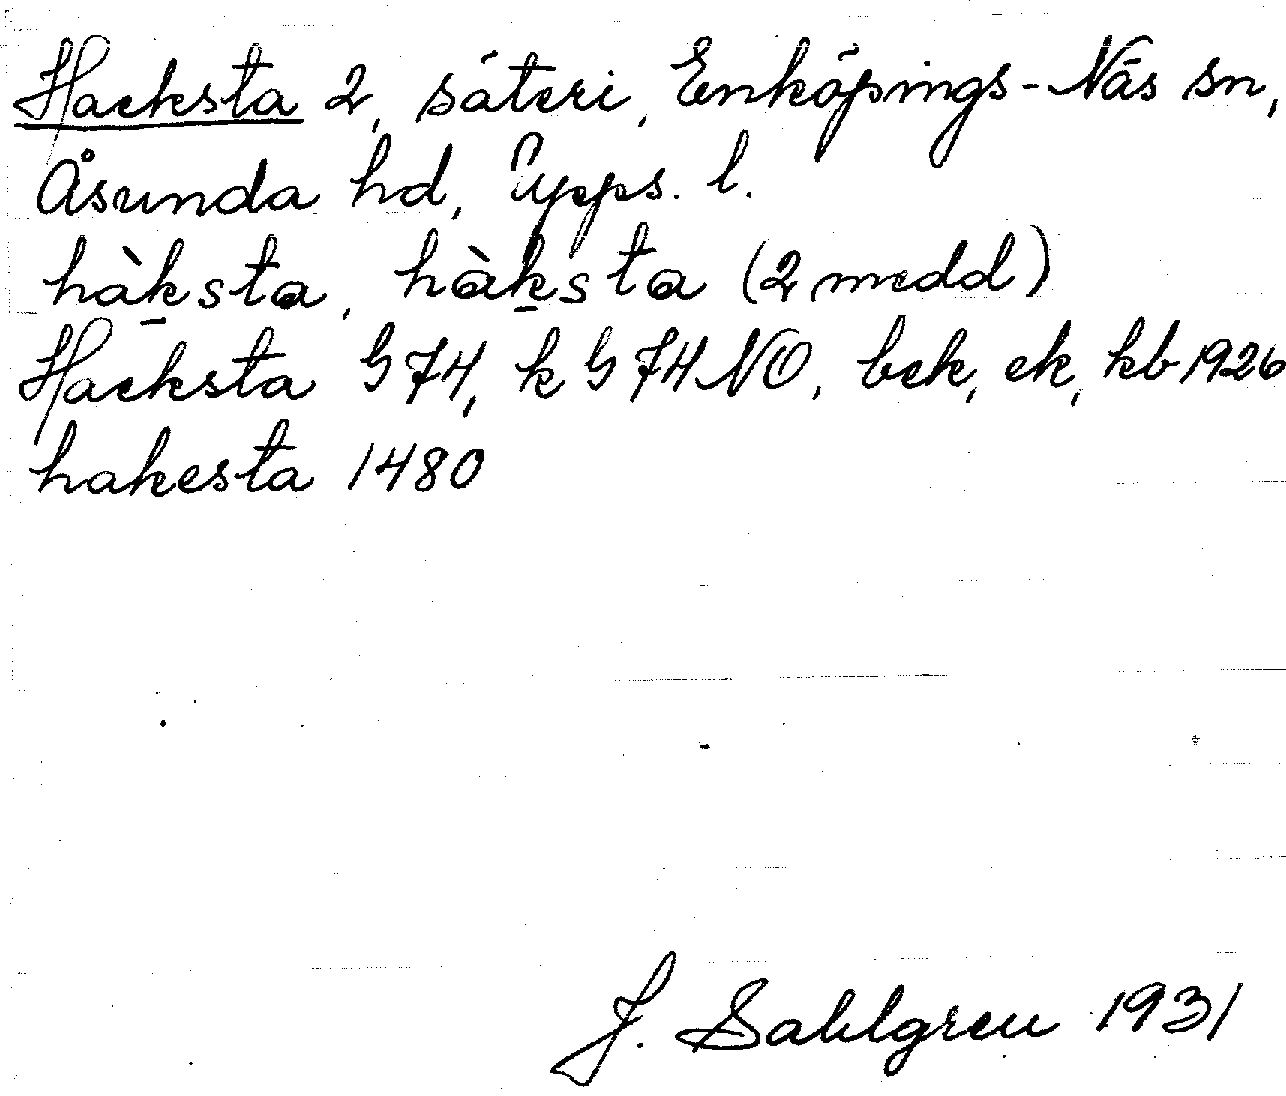 Hacksta 2, säteri, Enköpings-Näs sn,
Åsunda hd, Upps. l.
hàk̠sta, hàk̠sta (2 medd)
Hacksta G 74, k G 74 NO, bek, ek, kb 1926
hakesta 1480
J. Sahlgren 1931